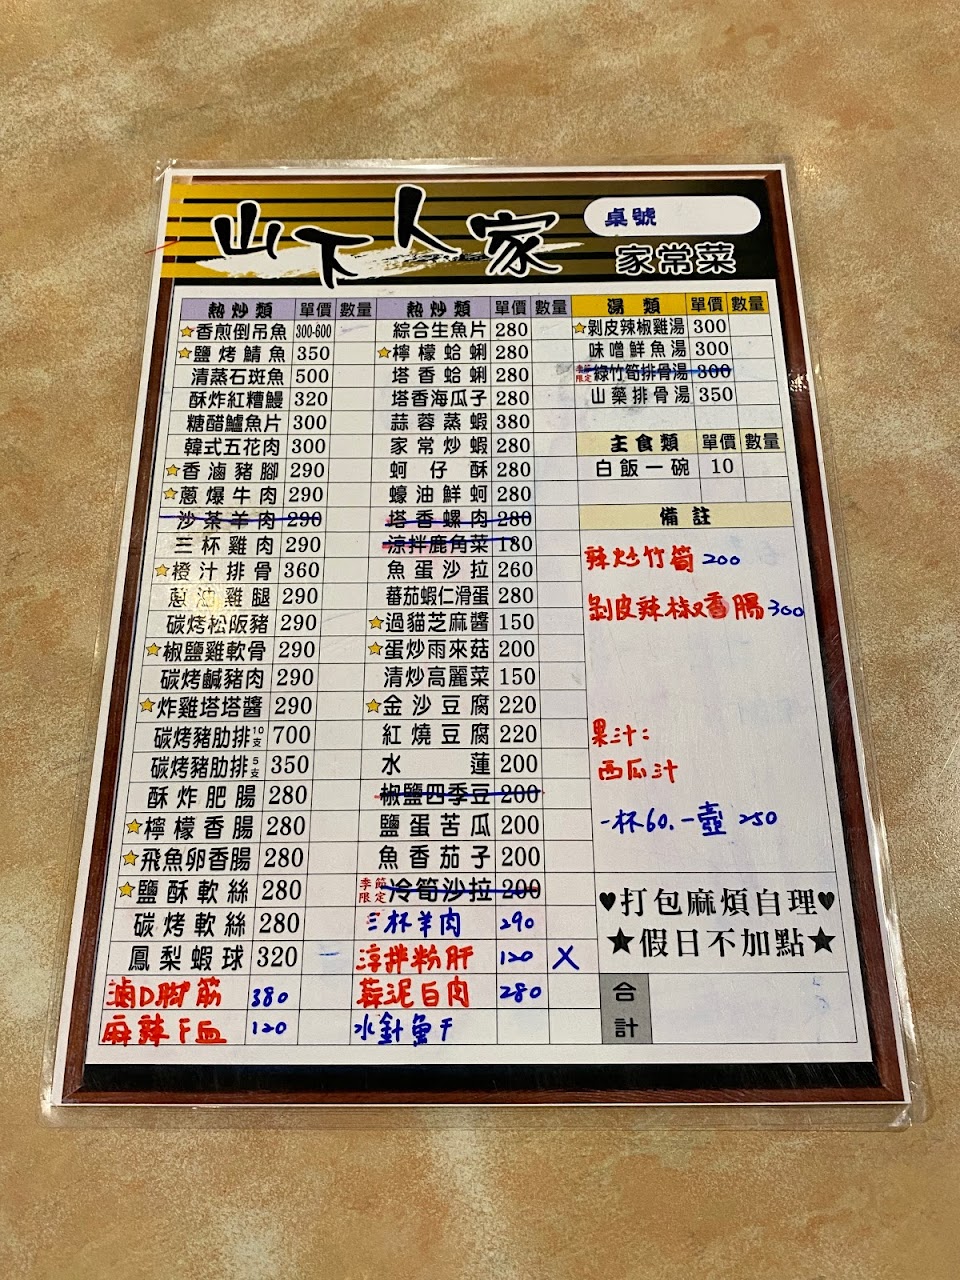 山下人家
桌號
家常菜
熱炒類 單價 數量
☆香煎倒吊魚 300-600
☆鹽烤鯖魚 350
清蒸石斑魚 500
酥炸紅糟鰻 320
糖醋鱸魚片 300
韓式五花肉 300
☆香滷豬腳 290
☆蔥爆牛肉 290
沙茶羊肉 290
三杯雞肉 290
☆橙汁排骨 360
蔥油雞腿 290
碳烤松阪豬 290
☆椒鹽雞軟骨 290
碳烤鹹豬肉 290
☆炸雞塔塔醬 290
碳烤豬肋排10支 700
碳烤豬肋排5支 350
酥炸肥腸 280
☆檸檬香腸 280
☆飛魚卵香腸 280
☆鹽酥軟絲 280
碳烤軟絲 280
鳳梨蝦球 320
滷D腳筋 380
麻辣干血 120
熱炒類 單價 數量
綜合生魚片 280
☆檸檬蛤蜊 280
塔香蛤蜊 280
塔香海瓜子 280
蒜蓉蒸蝦 380
家常炒蝦 280
蚵仔酥 280
蠔油鮮蚵 280
塔香螺肉 280
涼拌鹿角菜 180
魚蛋沙拉 260
蕃茄蝦仁滑蛋 280
☆過貓芝麻醬 150
☆蛋炒雨來菇 200
清炒高麗菜 150
☆金沙豆腐 220
紅燒豆腐 220
水蓮 200
椒鹽四季豆 200
鹽蛋苦瓜 200
魚香茄子 200
季節限定 冷筍沙拉 200
三杯羊肉 290
涼拌粉肝 120 X
蒜泥白肉 280
水針魚干
湯類 單價 數量
☆剝皮辣椒雞湯 300
味噌鮮魚湯 300
季節限定 綠竹筍排骨湯 300
山藥排骨湯 350
主食類 單價 數量
白飯一碗 10
備註
辣炒竹筍 200
剝皮辣椒香腸 300
果汁:
西瓜汁
一杯60.一壺 250
♥打包麻煩自理♥
★假日不加點★
合計